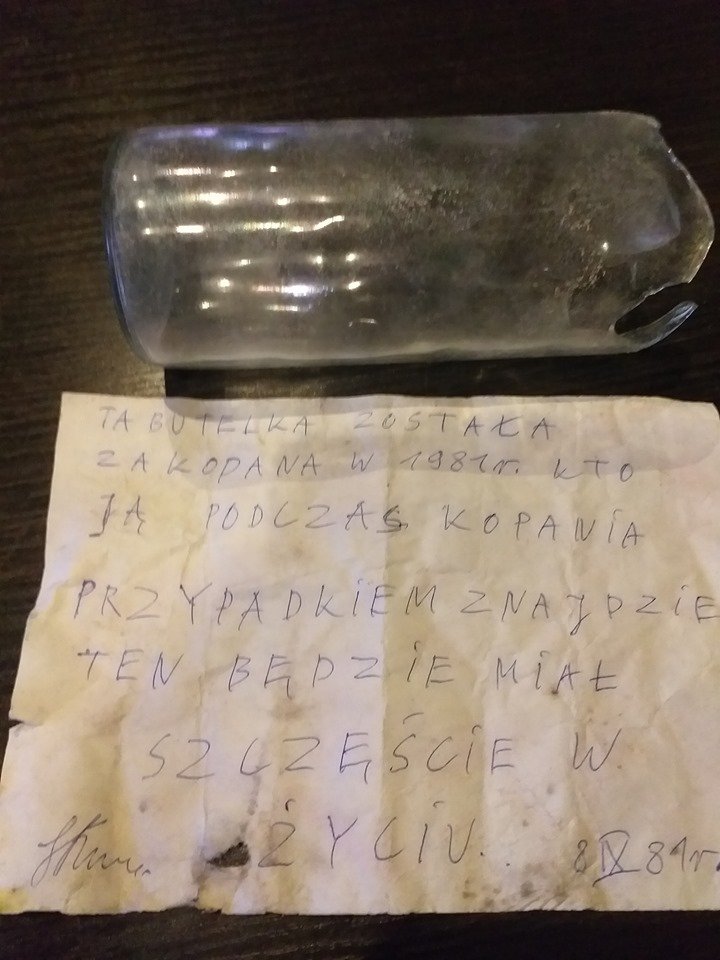 TA BUTELKA ZOSTAŁA
ZAKOPANA W 1981r. KTO
JĄ PODCZAS KOPANIA
PRZYPADKIEM ZNAJDZIE
TEN BĘDZIE MIAŁ
SZCZĘŚCIE W
ŻYCIU..
8 IX 81r.